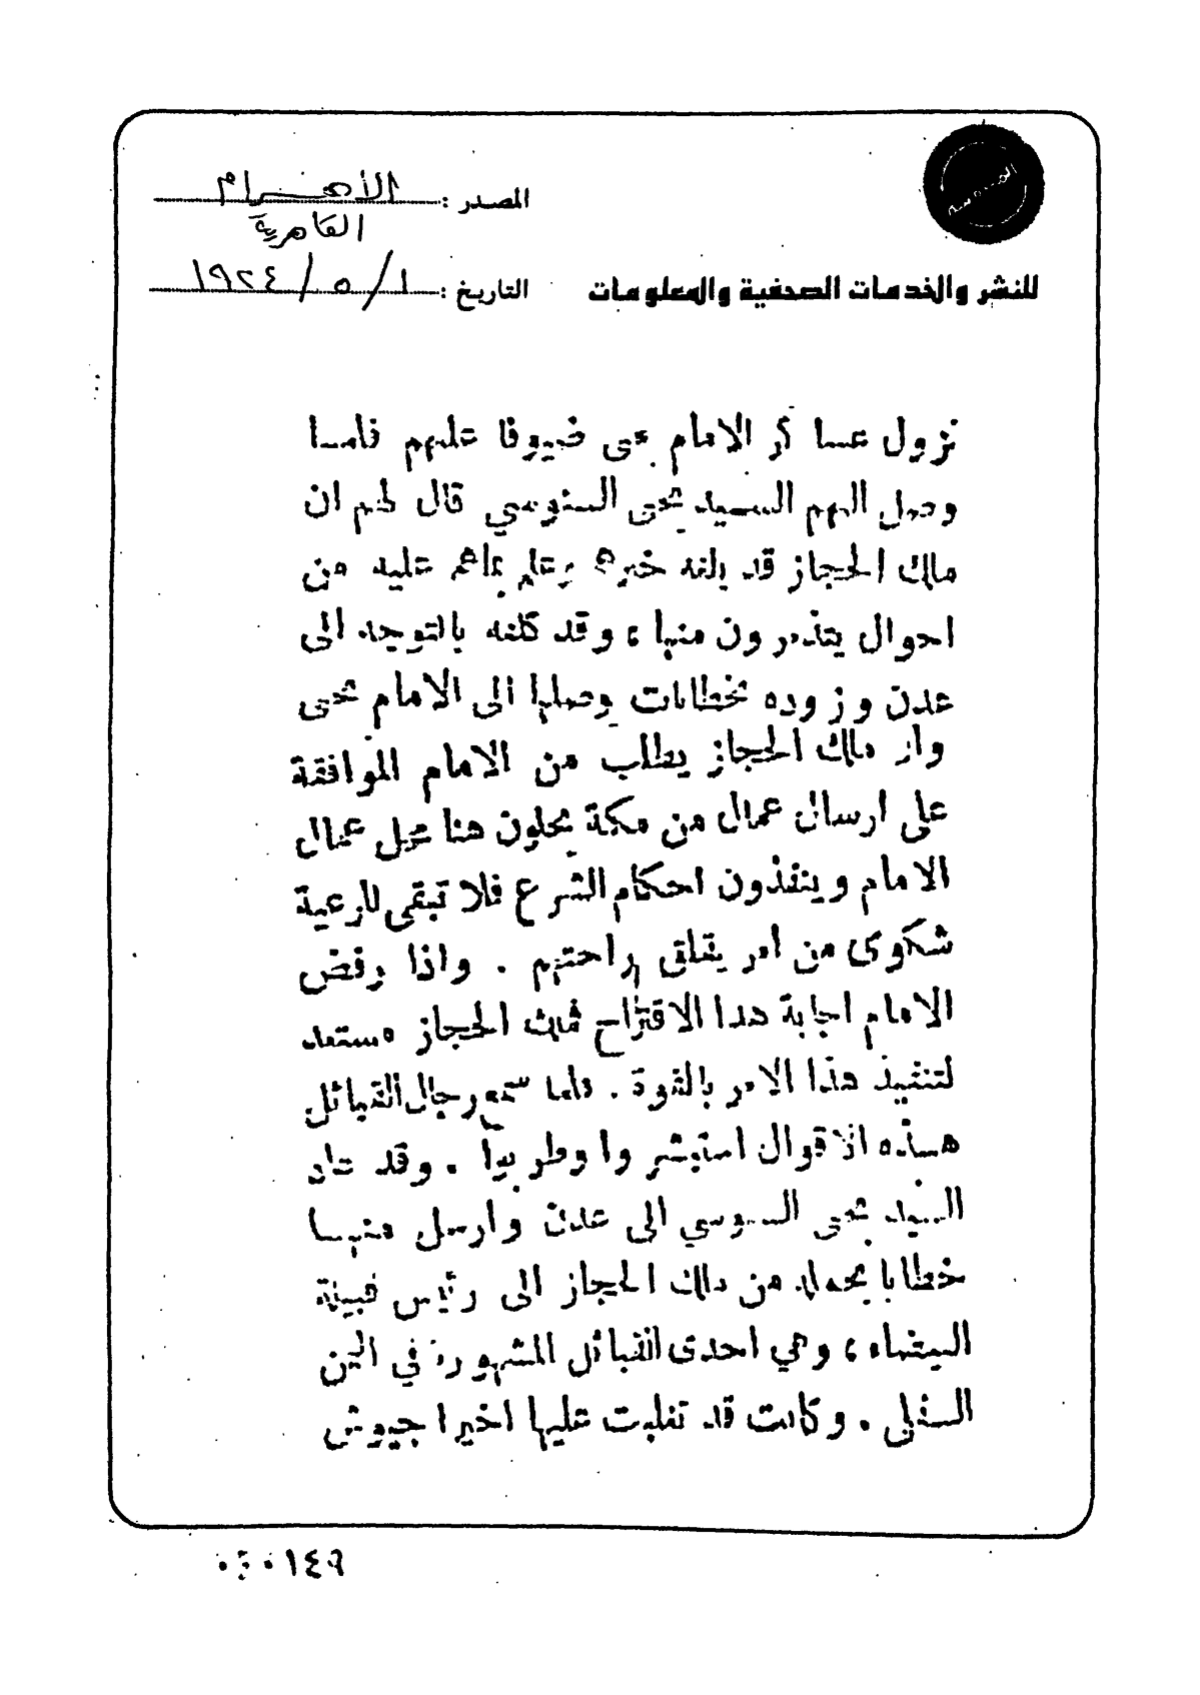 المصدر : الأهرام
القاهرية
للنشر والخدمات الصحفية والمعلومات
التاريخ : ١ / ٥ / ١٩٢٤
نزول عساكر الامام يحيى ضيوفا عليهم فلمـا
وصل اليهم السيد يحيى السنوسي قال لهم ان
ملك الحجاز قد بلغه خبرهم وعلم بما هم عليه من
احوال يتذمرون منها ، وقد كلفه بالتوجه الى
عدن وزوده بخطابات وصلها الى الامام يحيى
وان ملك الحجاز يطلب من الامام الموافقة
على ارسال عمال من مكة يحلون هنا محل عمال
الامام وينفذون احكام الشرع فلا تبقى للرعية
شكوى من امر يقلق راحتهم . واذا رفض
الامام اجابة هذا الاقتراح فملك الحجاز مستعد
لتنفيذ هذا الامر بالقوة . فلما سمع رجال القبائل
هـذه الاقوال استبشروا وطربوا . وقد عاد
السيد يحيى السنوسي الى عدن وارسل منهـا
خطابا يحمله من ملك الحجاز الى رئيس قبيلة
البيضاء ، وهي احدى القبائل المشهورة في اليمن
السفلى . وكانت قد تغلبت عليها اخيرا جيوش